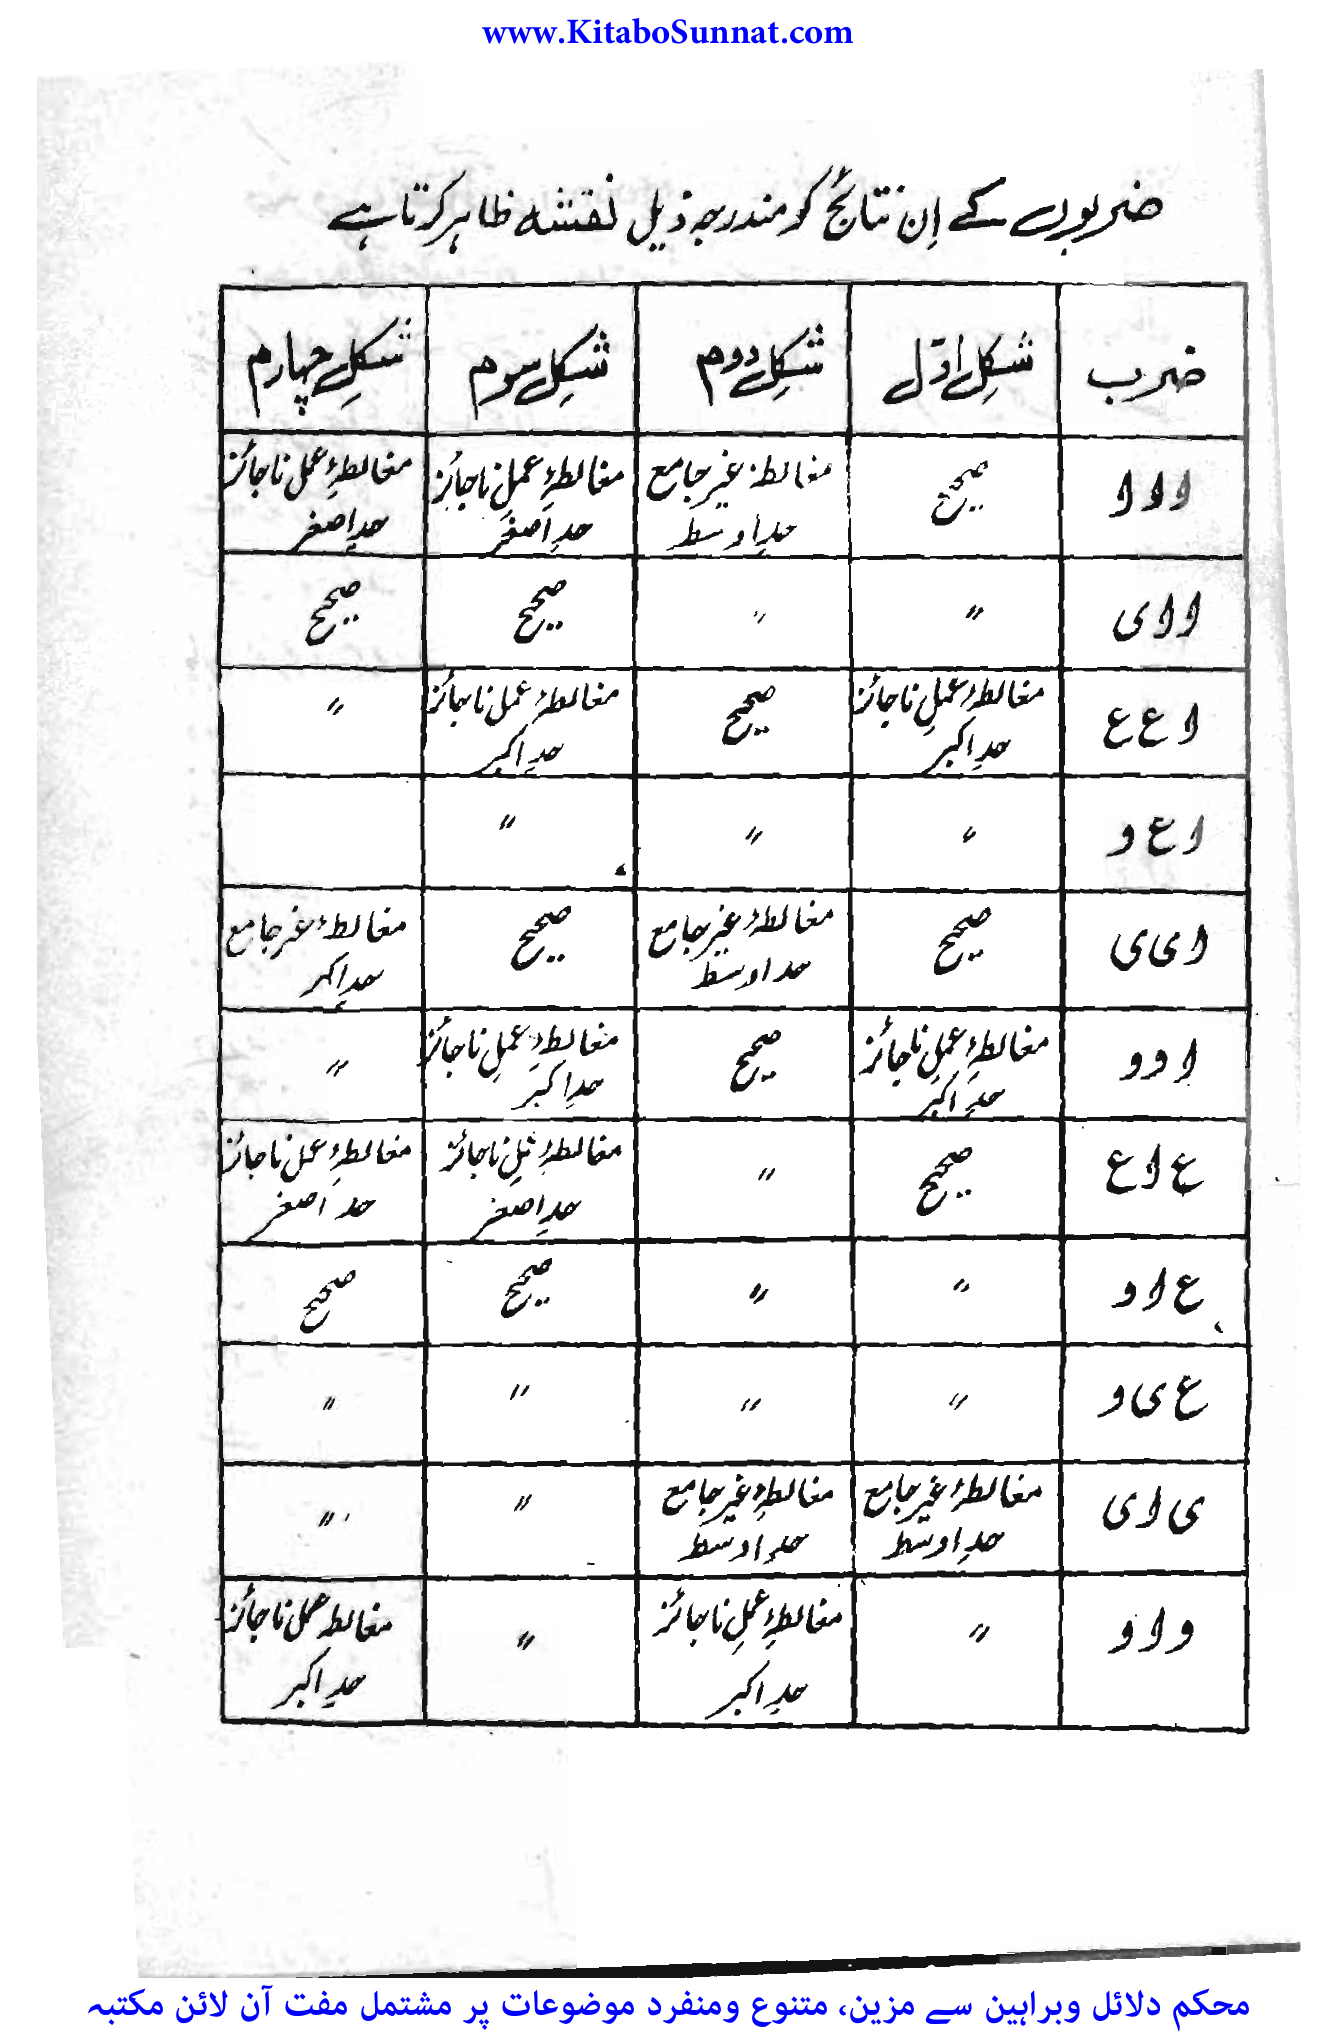 www.KitaboSunnat.com
ضربوں کے اِن نتائج کو مندرجہ ذیل نقشہ ظاہر کرتا ہے
ضرب شکلِ اوّل شکلِ دوم شکلِ سوم شکلِ چہارم
ا ا ا صحیح مغالطۂ غیر جامع حدِ اوسط مغالطۂ عملِ ناجائز حدِ اصغر مغالطۂ عملِ ناجائز حدِ اصغر
ا ا ی 〃 〃 صحیح صحیح
ا ع ع مغالطۂ عملِ ناجائز حدِ اکبر صحیح مغالطۂ عمل ناجائز حدِ اکبر 〃
ا ع و 〃 〃 〃
ا ی ی صحیح مغالطۂ غیر جامع حد اوسط صحیح مغالطۂ غیر جامع حدِ اکبر
ا و و مغالطۂ عملِ ناجائز حدِ اکبر صحیح مغالطۂ عملِ ناجائز حدِ اکبر 〃
ع ا ع صحیح 〃 مغالطۂ عملِ ناجائز حدِ اصغر مغالطۂ عمل ناجائز حد اصغر
ع ا و 〃 〃 صحیح صحیح
ع ی و 〃 〃 〃 〃
ی ا ی مغالطۂ غیر جامع حدِ اوسط مغالطۂ غیر جامع حدِ اوسط 〃 〃
و ا و 〃 مغالطۂ عملِ ناجائز حدِ اکبر 〃 مغالطۂ عمل ناجائز حدِ اکبر
محکم دلائل وبراہین سے مزین، متنوع ومنفرد موضوعات پر مشتمل مفت آن لائن مکتبہ